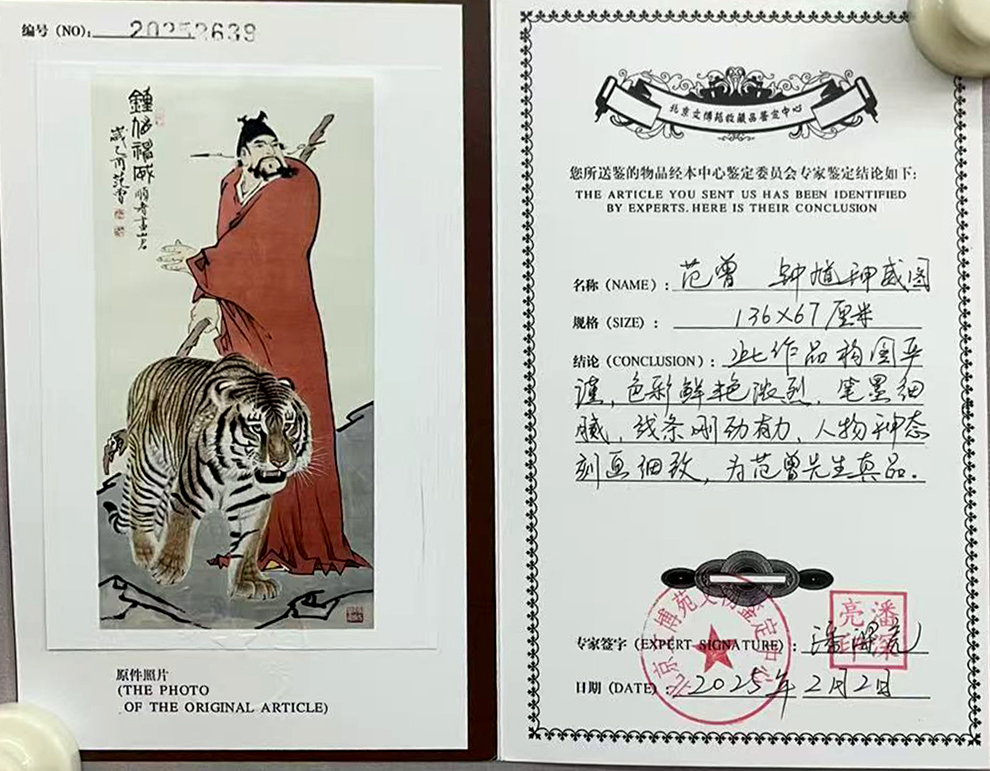 编号 (NO): 20252639
鍾馗神威
歲乙酉范曾
順李畫山君
原件照片
(THE PHOTO
OF THE ORIGINAL ARTICLE)
北京文博苑收藏品鉴定中心
您所送鉴的物品经本中心鉴定委员会专家鉴定结论如下:
THE ARTICLE YOU SENT US HAS BEEN IDENTIFIED
BY EXPERTS. HERE IS THEIR CONCLUSION
名称 (NAME): 范曾 钟馗神威图
规格 (SIZE): 136×67厘米
结论 (CONCLUSION): 此作品构图严
谨,色彩鲜艳浓烈,笔墨细
腻,线条刚劲有力,人物神态
刻画细致,为范曾先生真品.
专家签字 (EXPERT SIGNATURE): 潘深亮
潘深亮印
日期 (DATE): 2025年2月2日